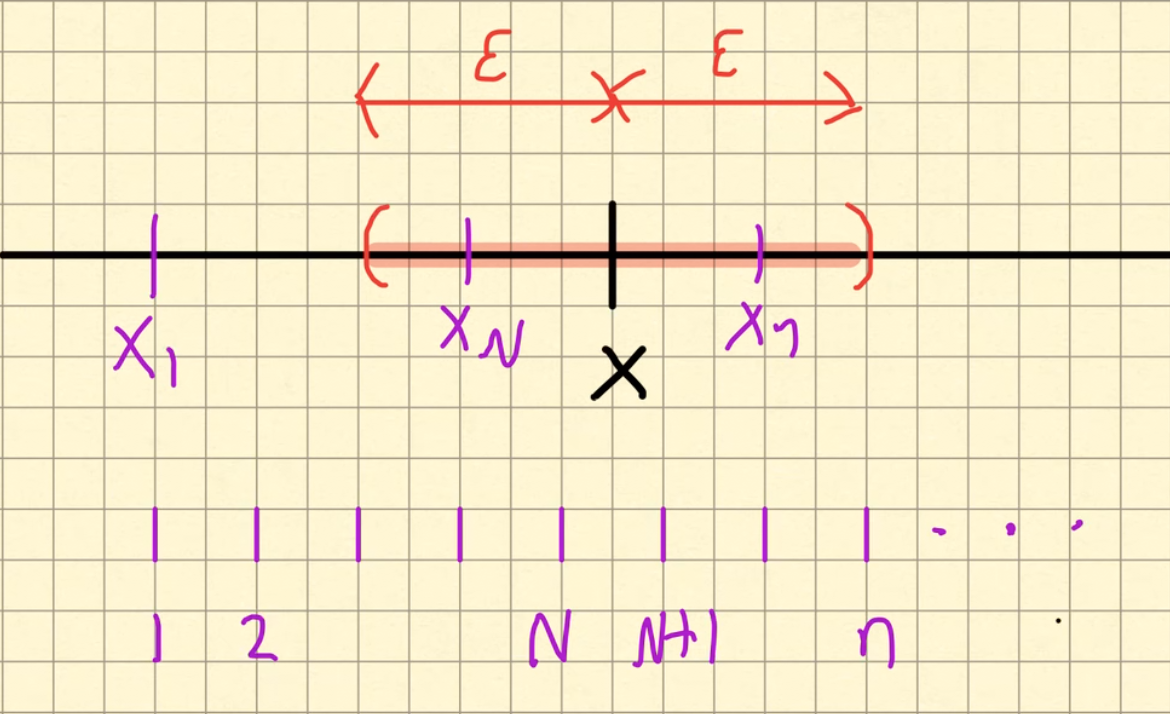 ε ε
( )
x₁ x_N x x_n
| | | | | | | | . . .
1 2 N N+1 n